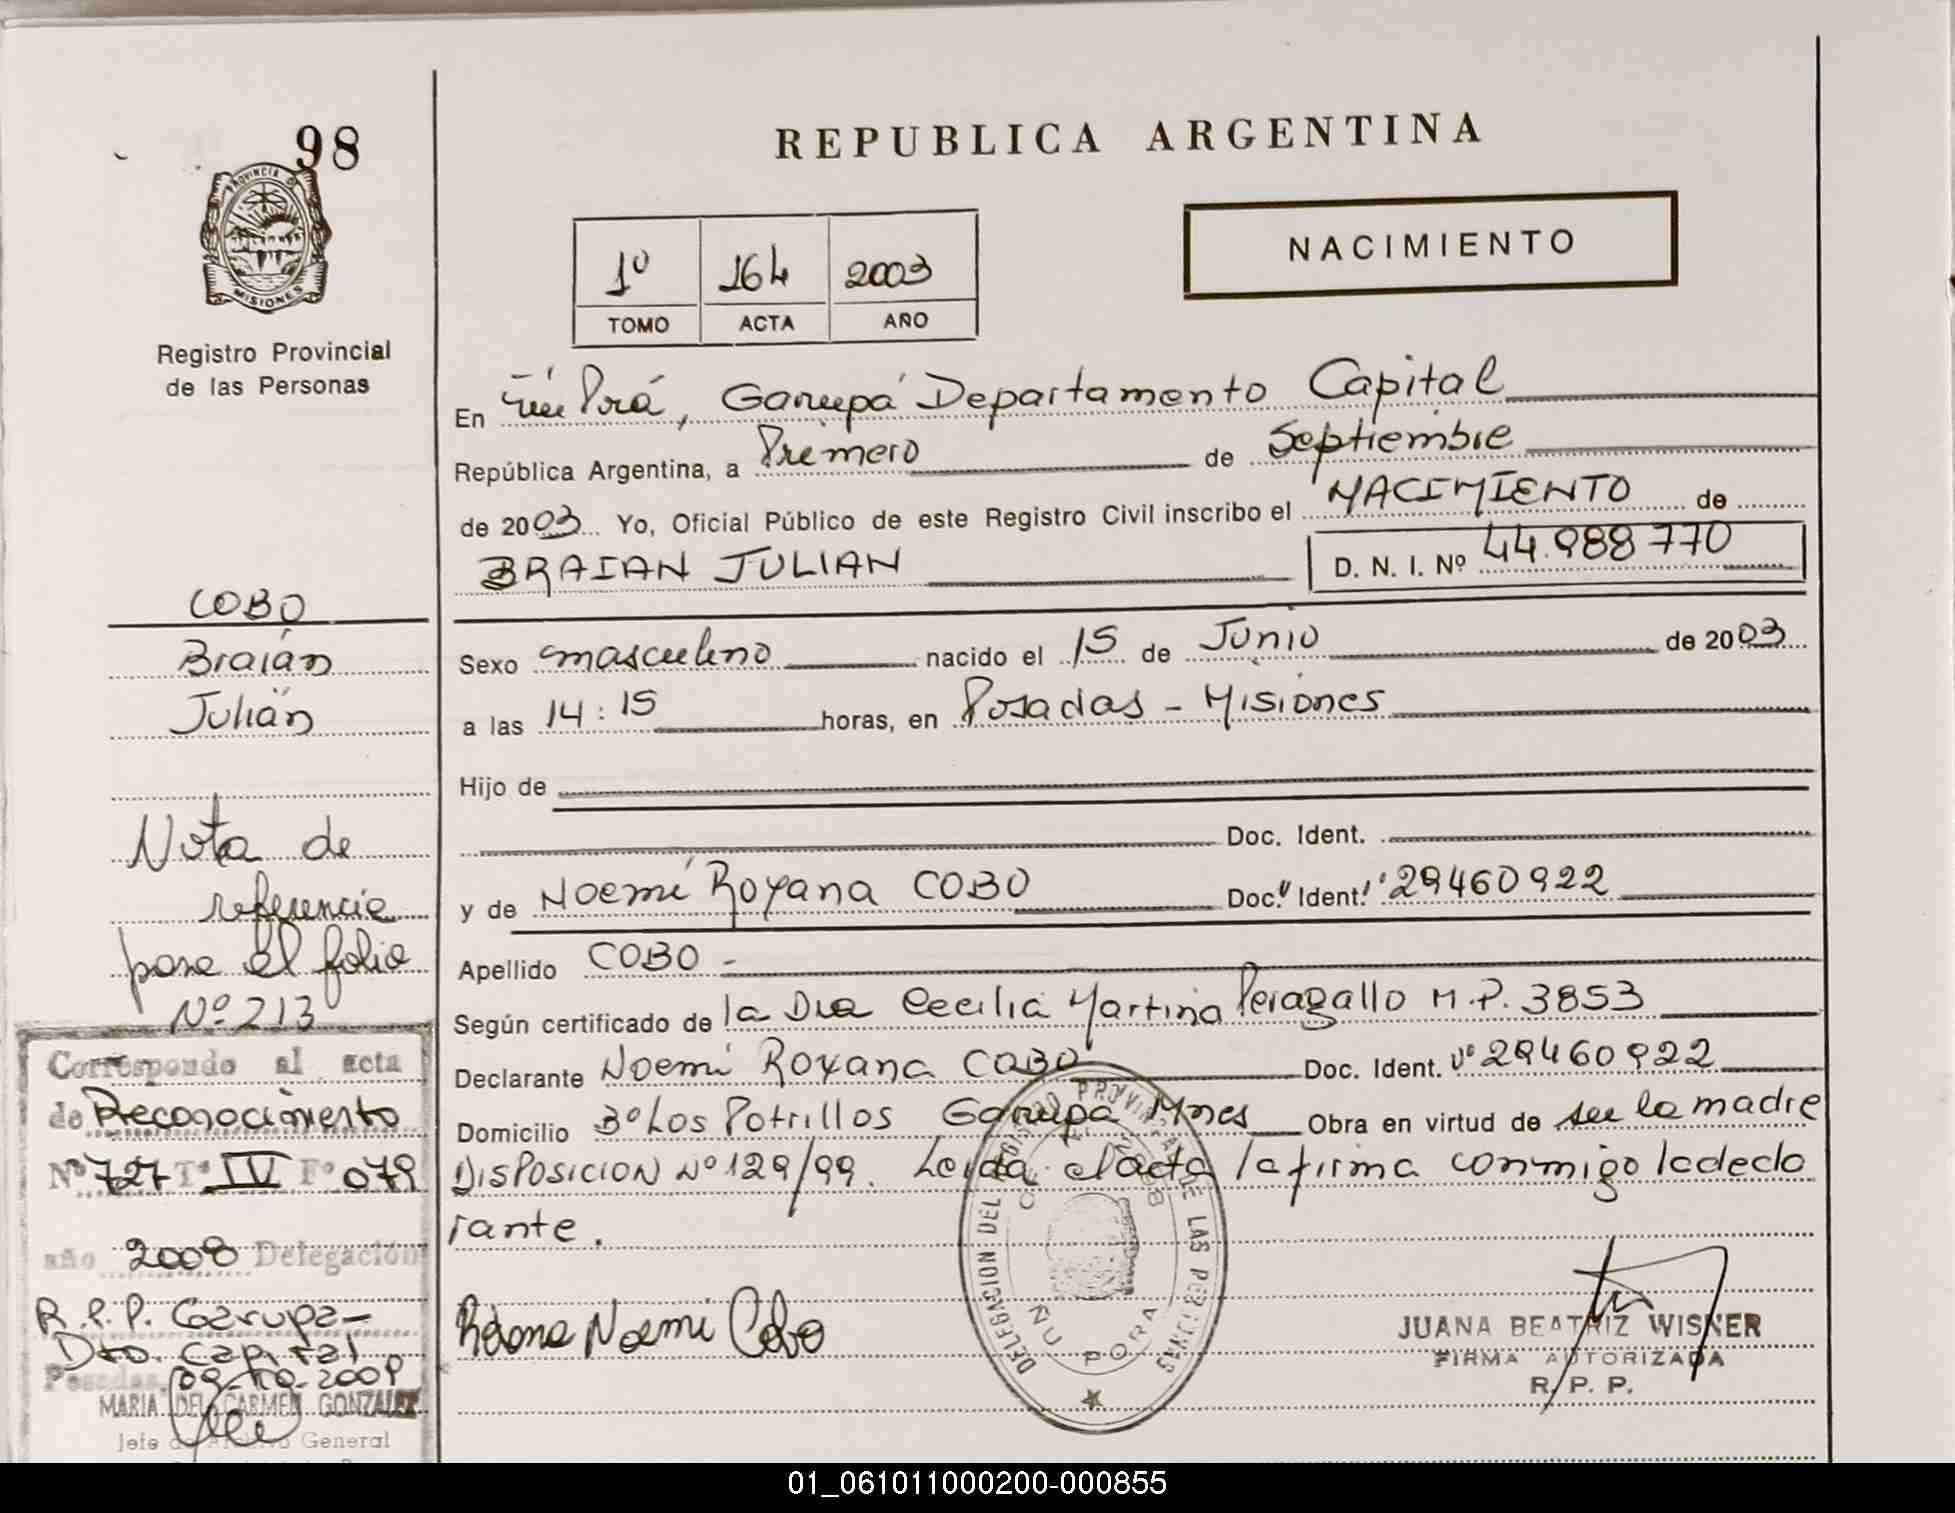 98
PROVINCIA DE
MISIONES
Registro Provincial
de las Personas
REPUBLICA ARGENTINA
NACIMIENTO
1º 164 2003
TOMO ACTA AÑO
En Ñú Porá, Garupá Departamento Capital
República Argentina, a Primero de Septiembre
de 2003 Yo, Oficial Público de este Registro Civil inscribo el NACIMIENTO de
BRAIAN JULIAN D. N. I. Nº 44.988770
Sexo masculino nacido el 15 de Junio de 2003
a las 14:15 horas, en Posadas - Misiones
Hijo de
Doc. Ident.
y de Noemí Roxana COBO Doc. Ident. 29460922
Apellido COBO -
Según certificado de la Dra Cecilia Martina Peragallo M.P. 3853
Declarante Noemí Roxana COBO Doc. Ident. Nº 29460922
Domicilio Bº Los Potrillos Garupá Mnes Obra en virtud de ser la madre
DISPOSICION Nº 129/99. Leída el acta la firma conmigo la decla
rante.
Roxana Noemi Cobo
DELEGACION DEL REGISTRO PROVINCIAL DE LAS PERSONAS
ÑU PORA
JUANA BEATRIZ WISNER
FIRMA AUTORIZADA
R. P. P.
COBO
Braián
Julián
Nota de
referencia
pase el folio
Nº 213
Corresponde al acta
de Reconocimiento
Nº 727 Tº IV Fº 079
año 2008 Delegación
R.P.P. Garupa-
Dto. Capital
Posadas, 09-10-2008
MARIA DEL CARMEN GONZALEZ
Jefe de Archivo General
01_061011000200-000855